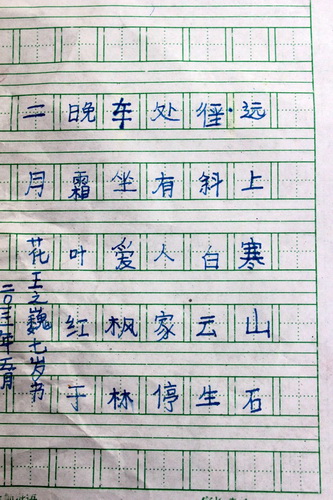 远上寒山石
径斜白云生
处有人家停
车坐爱枫林
晚霜叶红于
二月花
王之巍七岁书
二0一三年五月